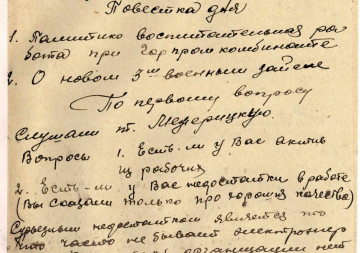 Повестка дня
1. Политико воспитательная ра
бота при Горпромкомбинате
2. О новом 3ем военным займе
По первому вопросу
Слушали т.
Вопросы 1. Есть-ли у Вас актив
из рабочих
2. Есть-ли у Вас недостатки в работе
(Вы сказали только про хорошия качества)
Сурьезным недостатком является то
что часто не бывает электроэнер
организации нет